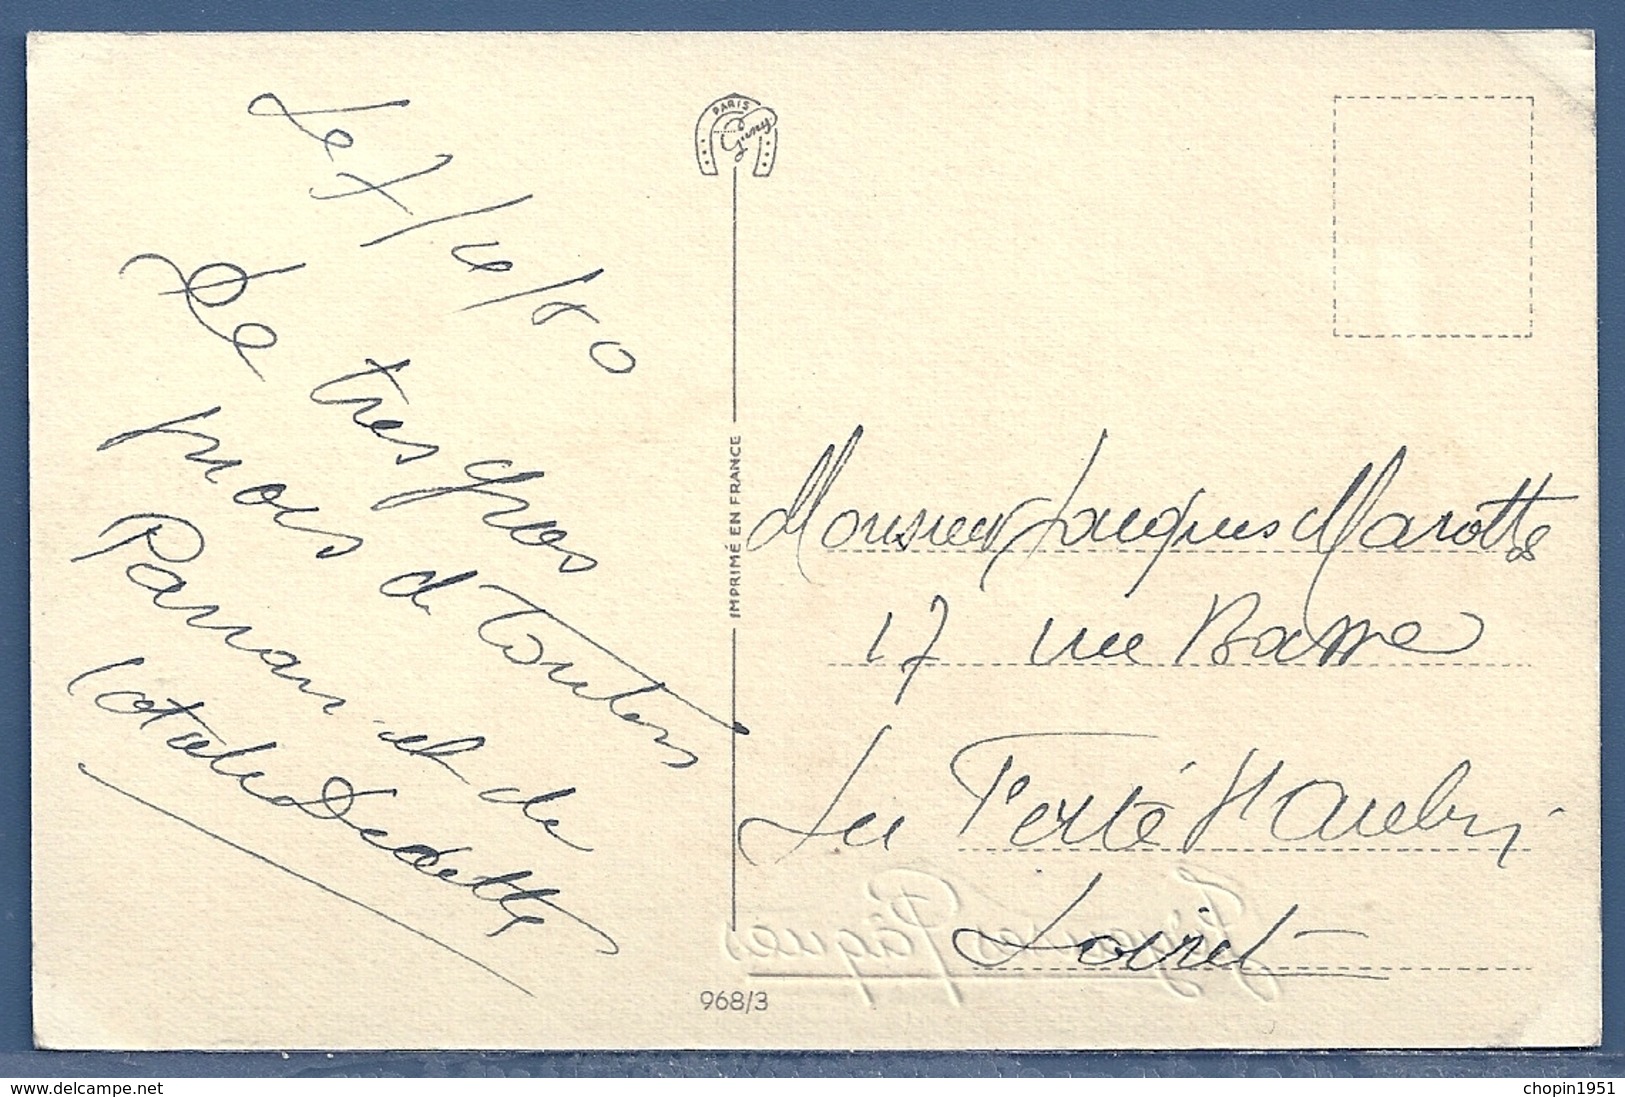 Le 7/4/80
De très gros
mois d Toutes
Parrain et de
Dedette
PARIS
Guny
IMPRIMÉ EN FRANCE
968/3
Monsieur Jacques Marotte
17 rue Basse
La Ferté St Aubin
Loiret
Joyeuses Pâques
www.delcampe.net
chopin1951